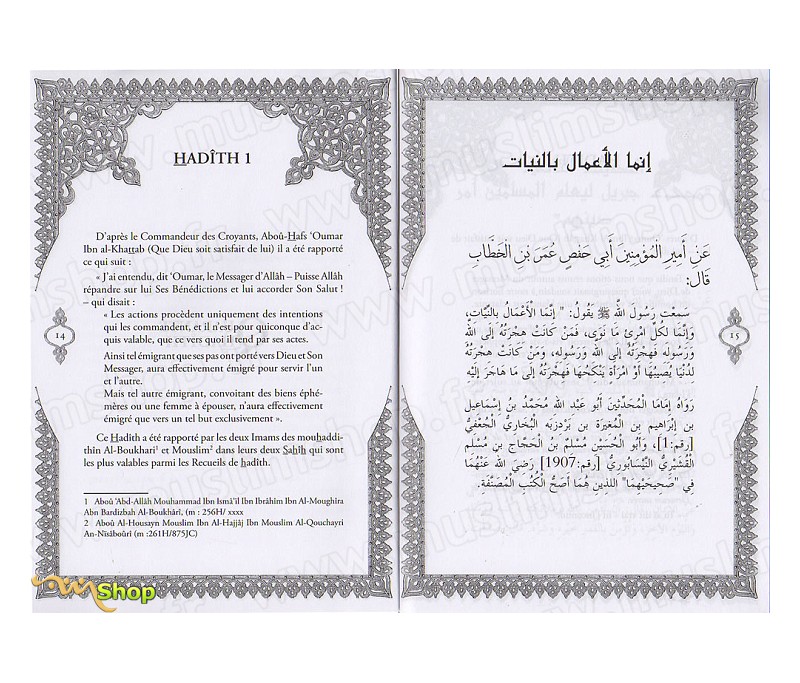 HADÎTH 1
D'après le Commandeur des Croyants, Aboû-Hafs 'Oumar
Ibn al-Khattab (Que Dieu soit satisfait de lui) il a été rapporté
ce qui suit :
« J'ai entendu, dit 'Oumar, le Messager d'Allâh – Puisse Allâh
répandre sur lui Ses Bénédictions et lui accorder Son Salut !
– qui disait :
« Les actions procèdent uniquement des intentions
qui les commandent, et il n'est pour quiconque d'ac-
quis valable, que ce vers quoi il tend par ses actes.
Ainsi tel émigrant que ses pas ont porté vers Dieu et Son
Messager, aura effectivement émigré pour servir l'un
et l'autre.
Mais tel autre émigrant, convoitant des biens éphé-
mères ou une femme à épouser, n'aura effectivement
émigré que vers un tel but exclusivement ».
Ce Hadîth a été rapporté par les deux Imams des mouhaddi-
thin Al-Boukhari¹ et Mouslim² dans leurs deux Sahîh qui sont
les plus valables parmi les Recueils de hadîth.
1 Aboû 'Abd-Allâh Mouhammad Ibn Ismâ'îl Ibn Ibrâhim Ibn Al-Moughira
Abn Bardizbah Al-Boukhârî, (m : 256H/ xxxx
2 Aboû Al-Housayn Mouslim Ibn Al-Hajjâj Ibn Mouslim Al-Qouchayri
An-Nîsâboûrî (m :261H/875JC)
14
إنما الأعمال بالنيات
عَنِ أَمِيرِ المُؤْمِنِينَ أَبِي حَفْصٍ عُمَرَ بْنِ الخَطَّابِ
قَالَ:
سَمِعْتُ رَسُولَ اللَّهِ ﷺ يَقُولُ: " إنَّمَا الْأَعْمَالُ بِالنِّيَّاتِ،
وَإِنَّمَا لِكُلِّ امْرِئٍ مَا نَوَى، فَمَنْ كَانَتْ هِجْرَتُهُ إلَى اللَّهِ
وَرَسُولِهِ فَهِجْرَتُهُ إلَى اللَّهِ وَرَسُولِهِ، وَمَنْ كَانَتْ هِجْرَتُهُ
لِدُنْيَا يُصِيبُهَا أَوْ امْرَأَةٍ يَنْكِحُهَا فَهِجْرَتُهُ إلَى مَا هَاجَرَ إلَيْهِ
رَوَاهُ إِمَامَا الْمُحَدِّثِينَ أَبُو عَبْدِ اللهِ مُحَمَّدُ بنُ إِسْمَاعِيل
بن إِبْرَاهِيم بن الْمُغِيرَة بن بَرْدِزبَه الْبُخَارِيُّ الْجُعْفِيُّ
[رقم:1]، وَأَبُو الْحُسَيْنِ مُسْلِمٌ بنُ الْحَجَّاج بن مُسْلِم
الْقُشَيْرِيُّ النَّيْسَابُورِيُّ [رقم:1907] رَضِيَ اللهُ عَنْهُمَا
فِي "صَحِيحَيْهِمَا" اللذين هُمَا أَصَحُّ الْكُتُبِ الْمُصَنَّفَةِ.
15
Shop